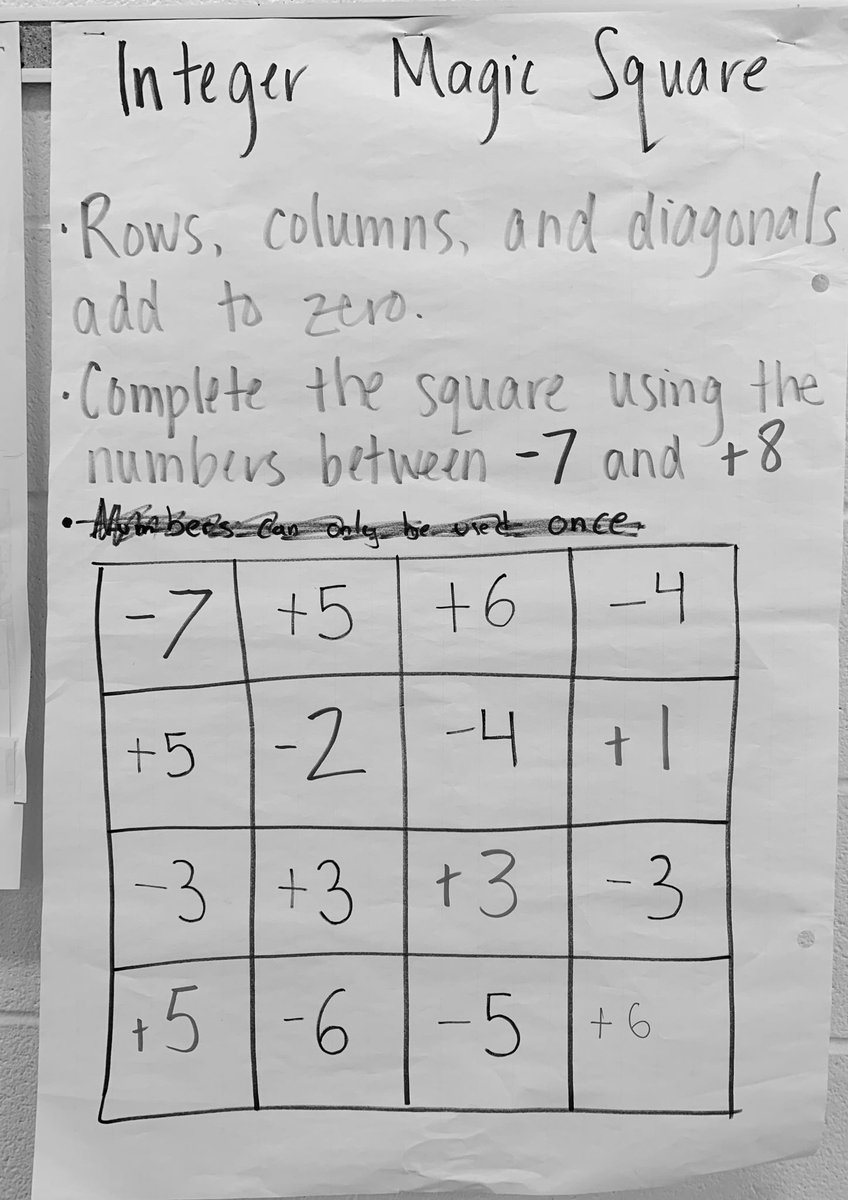 Integer Magic Square
• Rows, columns, and diagonals
add to zero.
• Complete the square using the
numbers between -7 and +8
• Numbers can only be used once.
-7 +5 +6 -4
+5 -2 -4 +1
-3 +3 +3 -3
+5 -6 -5 +6